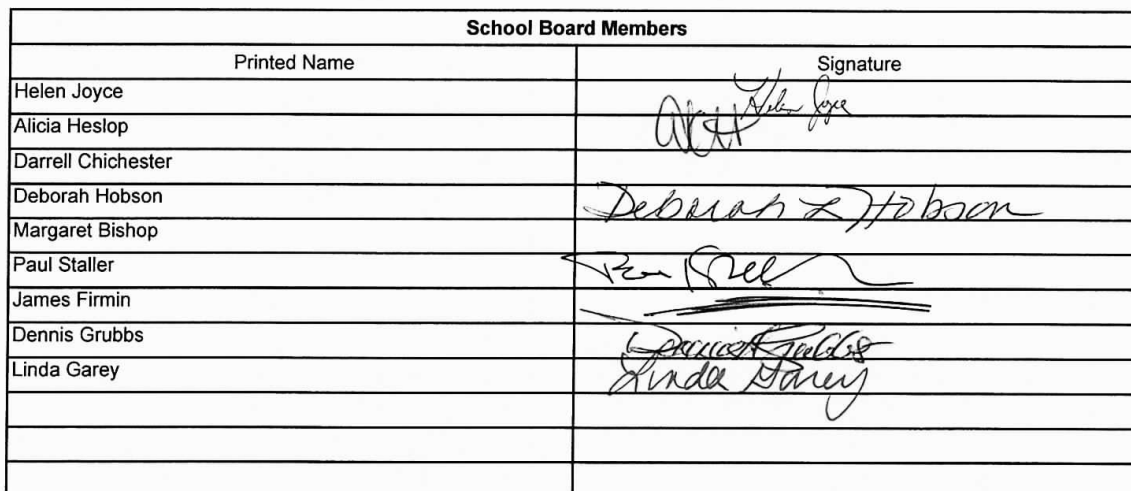 School Board Members
Printed Name Signature
Helen Joyce Helen Joyce
Alicia Heslop
Darrell Chichester
Deborah Hobson Deborah L Hobson
Margaret Bishop
Paul Staller
James Firmin
Dennis Grubbs Dennis Grubbs
Linda Garey Linda Garey